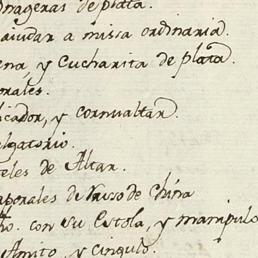 nageras de plata.
aiudar a missa ordinaria.
ena, y Cucharita de plata.
orales.
icador, y cornualtar.
lgatorio.
eles de Altar.
aporales de Razo de China
ho. con su Estola, y manipulo
Amito, y cingulo.